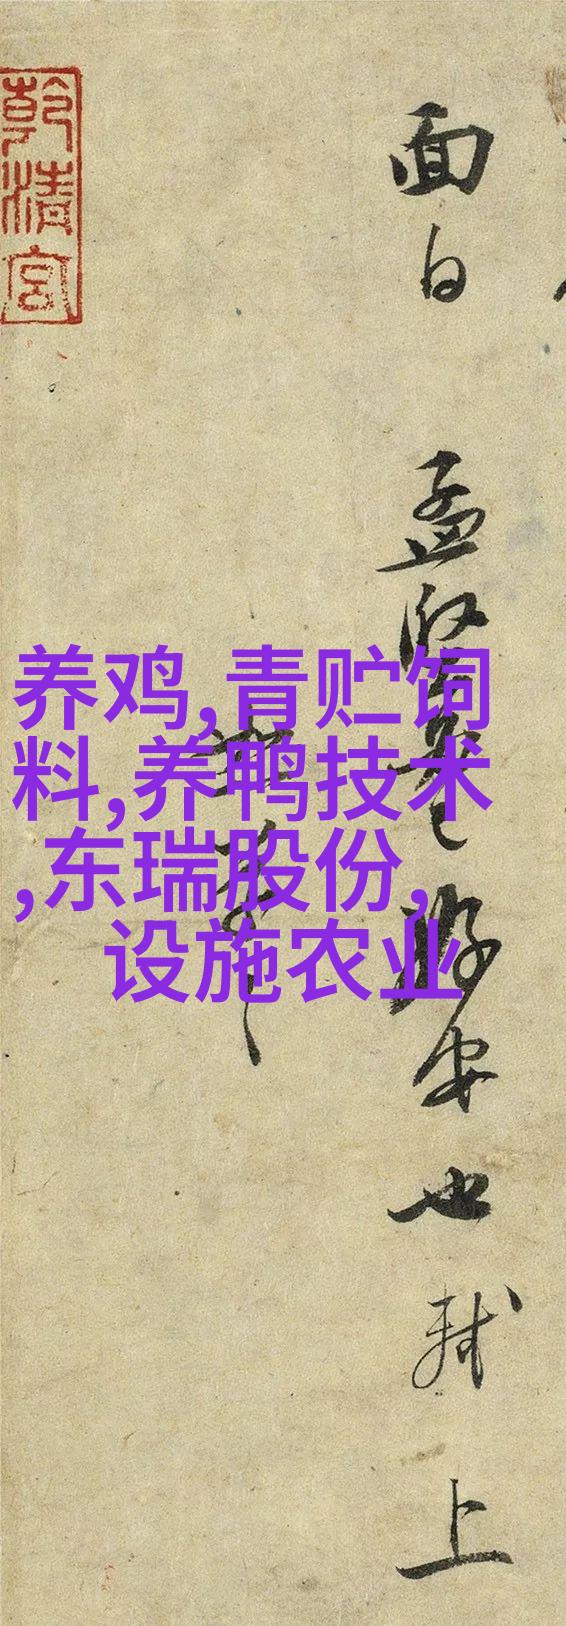 面白 孟堅 安也 軾上
乾清宮
养鸡,青贮饲
料,养鸭技术
,东瑞股份,
设施农业